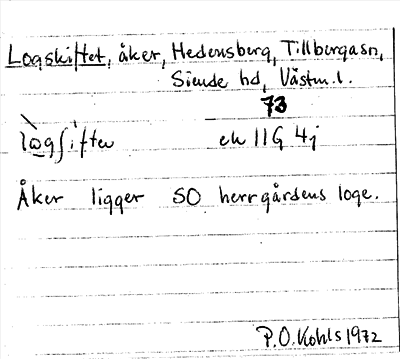 Logskiftet, åker, Hedensberg, Tillbergasn,
Siende hd, Västm.l.
73
ek 11G 4j
Åker ligger SO herrgårdens loge.
P.O. Kohls 1972